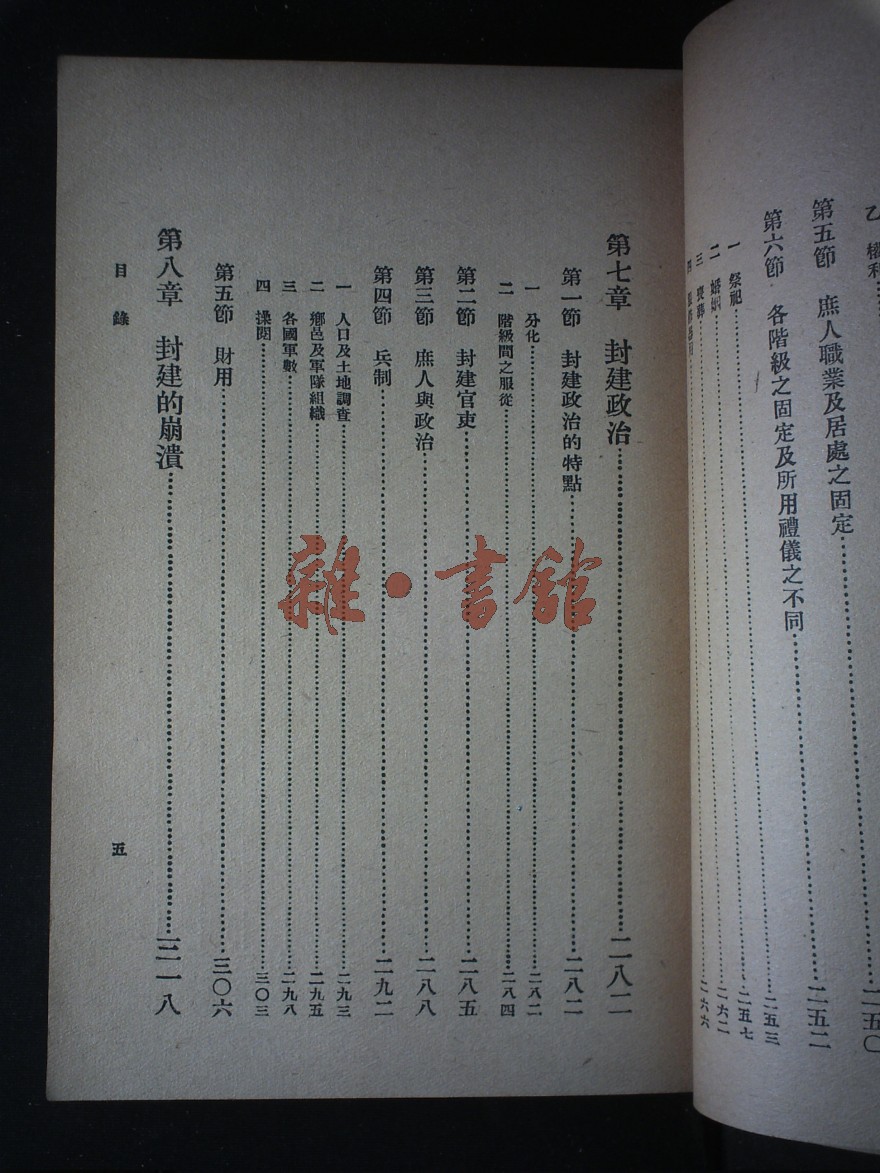 乙　權利……二五〇
第五節　庶人職業及居處之固定……二五二
第六節　各階級之固定及所用禮儀之不同……二五三
一　祭祀……二五七
二　婚姻……二六二
三　喪葬……二六六
四
第七章　封建政治……二八二
第一節　封建政治的特點……二八二
一　分化……二八二
二　階級間之服從……二八四
第二節　封建官吏……二八五
第三節　庶人與政治……二八八
第四節　兵制……二九二
一　人口及土地調查……二九三
二　鄉邑及軍隊組織……二九五
三　各國軍數……二九八
四　操閱……三〇三
第五節　財用……三〇六
第八章　封建的崩潰……三一八
目錄
五
雜·書館